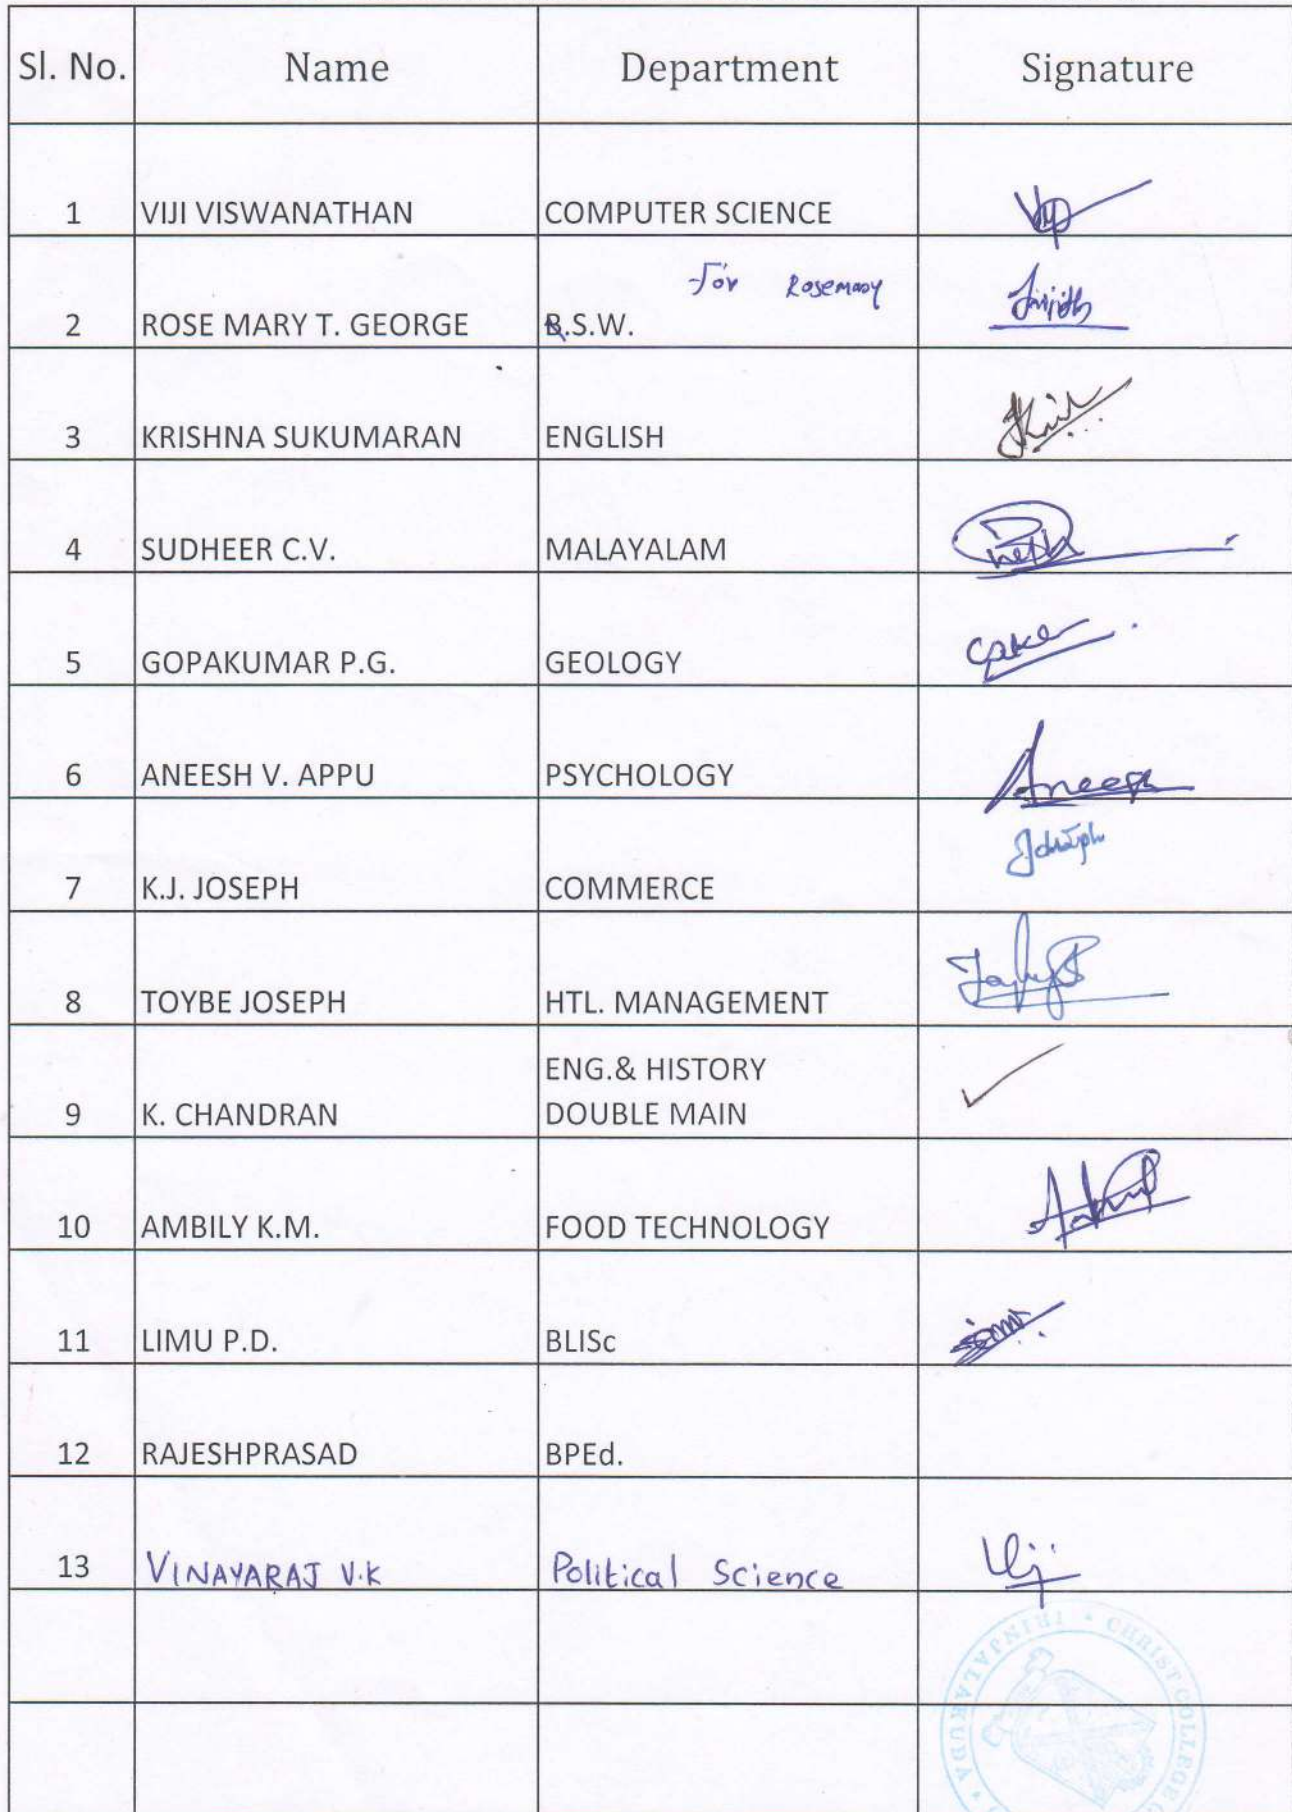 Sl. No. Name Department Signature
1 VIJI VISWANATHAN COMPUTER SCIENCE
for Rosemary
2 ROSE MARY T. GEORGE B.S.W.
3 KRISHNA SUKUMARAN ENGLISH
4 SUDHEER C.V. MALAYALAM
5 GOPAKUMAR P.G. GEOLOGY
6 ANEESH V. APPU PSYCHOLOGY Aneesh
7 K.J. JOSEPH COMMERCE
8 TOYBE JOSEPH HTL. MANAGEMENT
ENG.& HISTORY
9 K. CHANDRAN DOUBLE MAIN
10 AMBILY K.M. FOOD TECHNOLOGY
11 LIMU P.D. BLISc
12 RAJESHPRASAD BPEd.
13 VINAYARAJ V.K Political Science
CHRIST COLLEGE